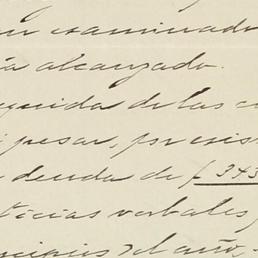 un examinado
ía alcanzado.
eguida de las c
pesar, por exis
deuda de £ 343
ticias verbales
ncipios del año,